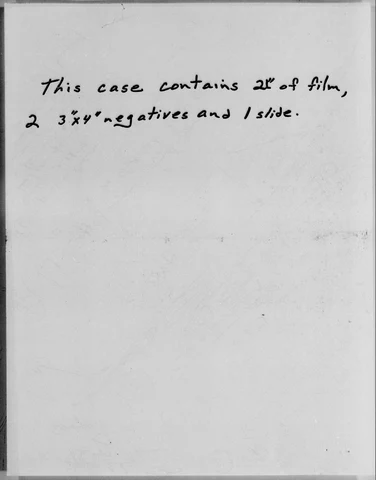 This case contains 25" of film,
2 3"x4" negatives and 1 slide.